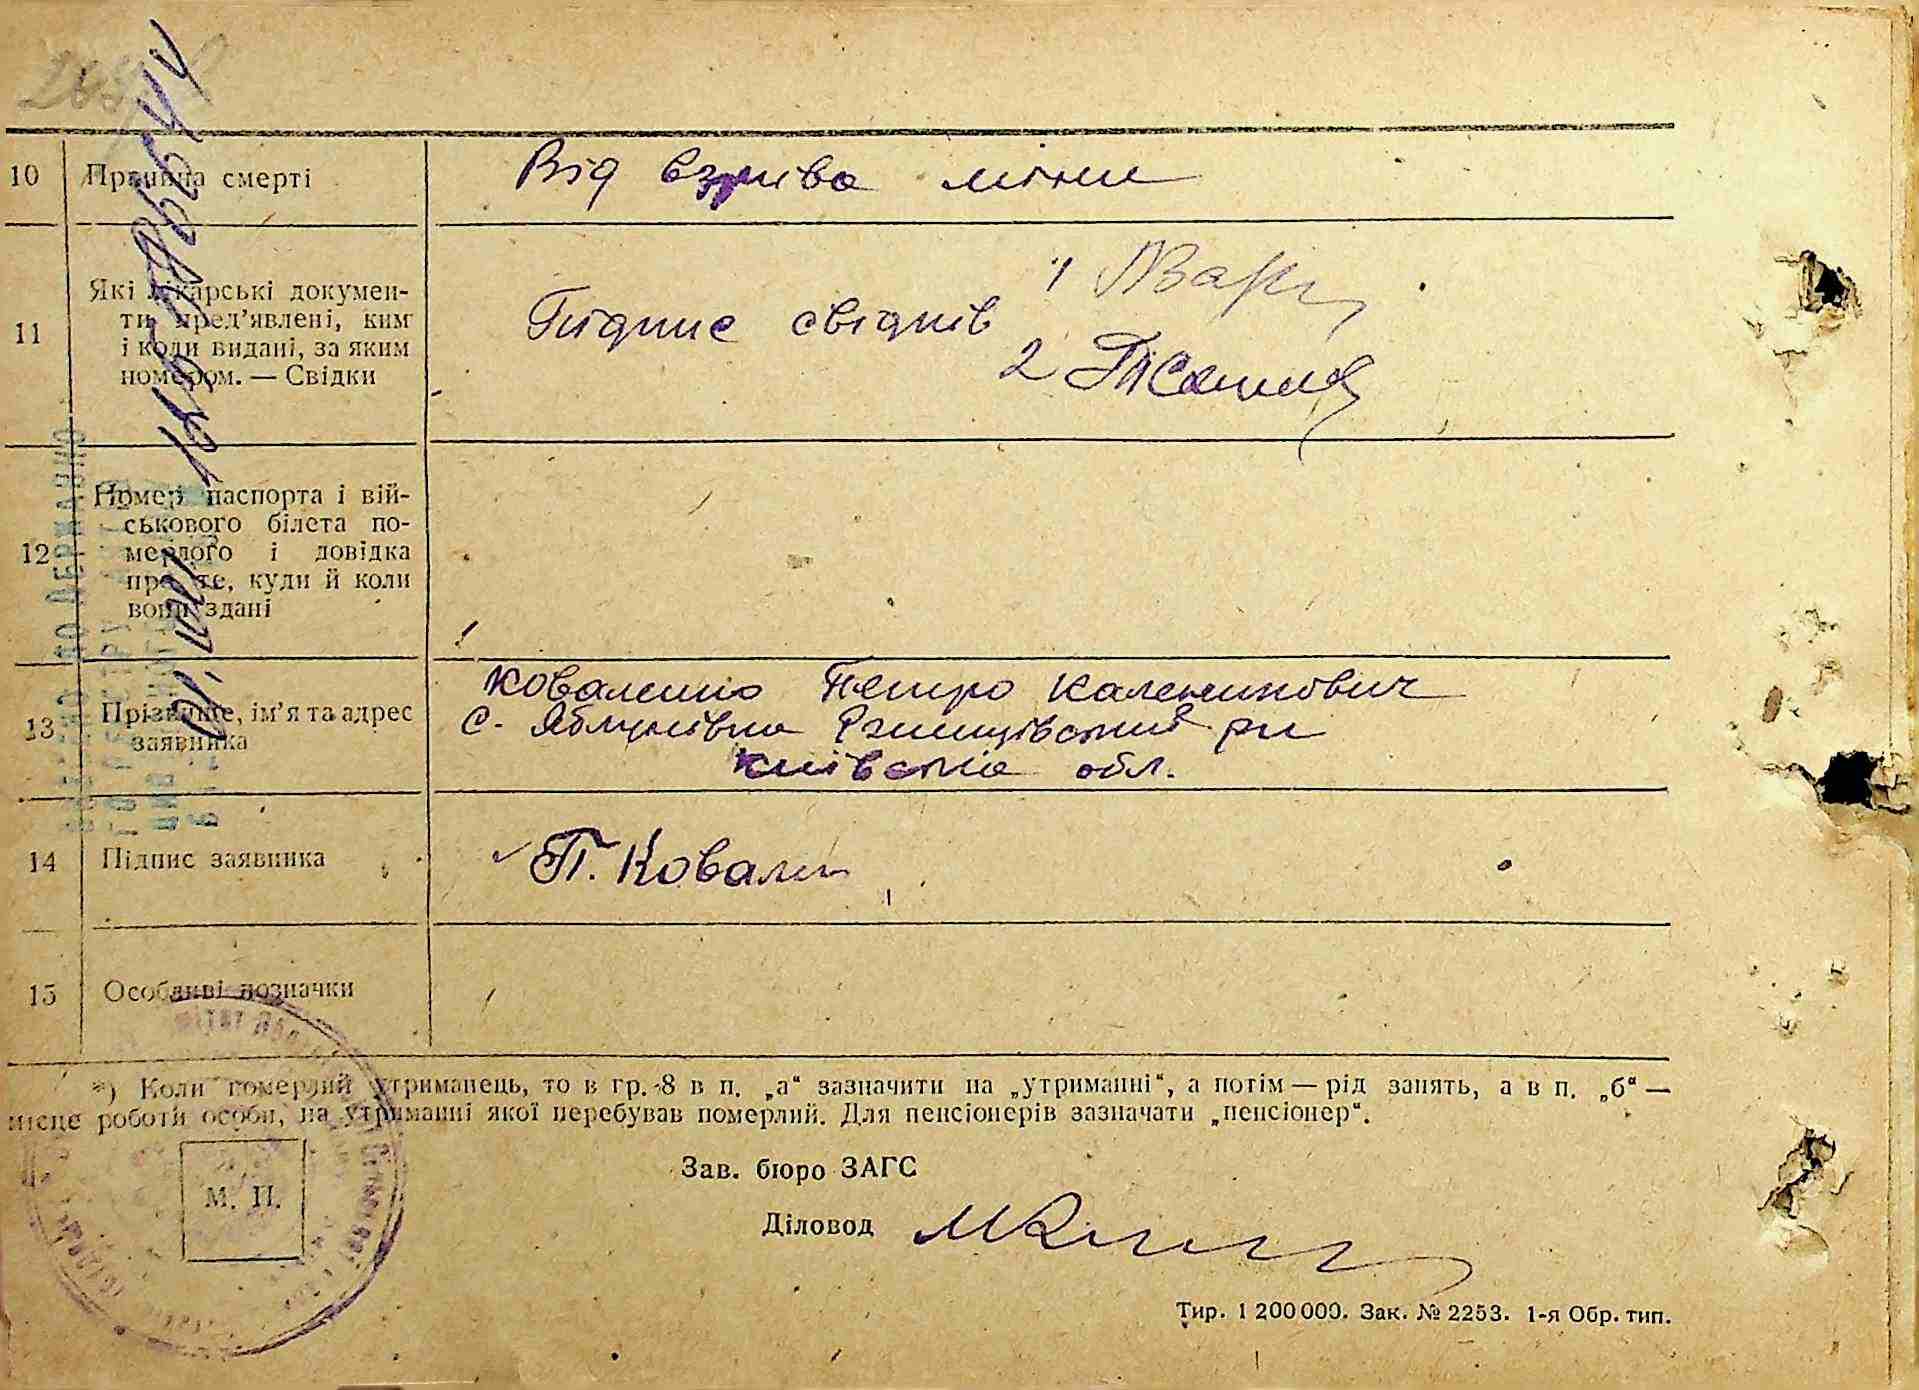 10 Причина смерті Від взрива міни
11 Які лікарські докумен-
ти пред’явлені, ким
і коли видані, за яким
номером. — Свідки
Підпис свідків 1
2
12 Номер паспорта і вій-
ськового білета по-
мерлого і довідка
про те, куди й коли
вони здані
13 Прізвище, ім’я та адрес
заявника
Коваленко Петро Каленикович
с. Яблунівка Ржищівський рн
Київська обл.
14 Підпис заявника П. Ковален
15 Особливі позначки
*) Коли померлий утриманець, то в гр. 8 в п. „а“ зазначити на „утриманні“, а потім — рід занять, а в п. „б“ —
місце роботи особи, на утриманні якої перебував померлий. Для пенсіонерів зазначати „пенсіонер“.
М. П.
Зав. бюро ЗАГС
Діловод
Тир. 1 200 000. Зак. № 2253. 1-я Обр. тип.